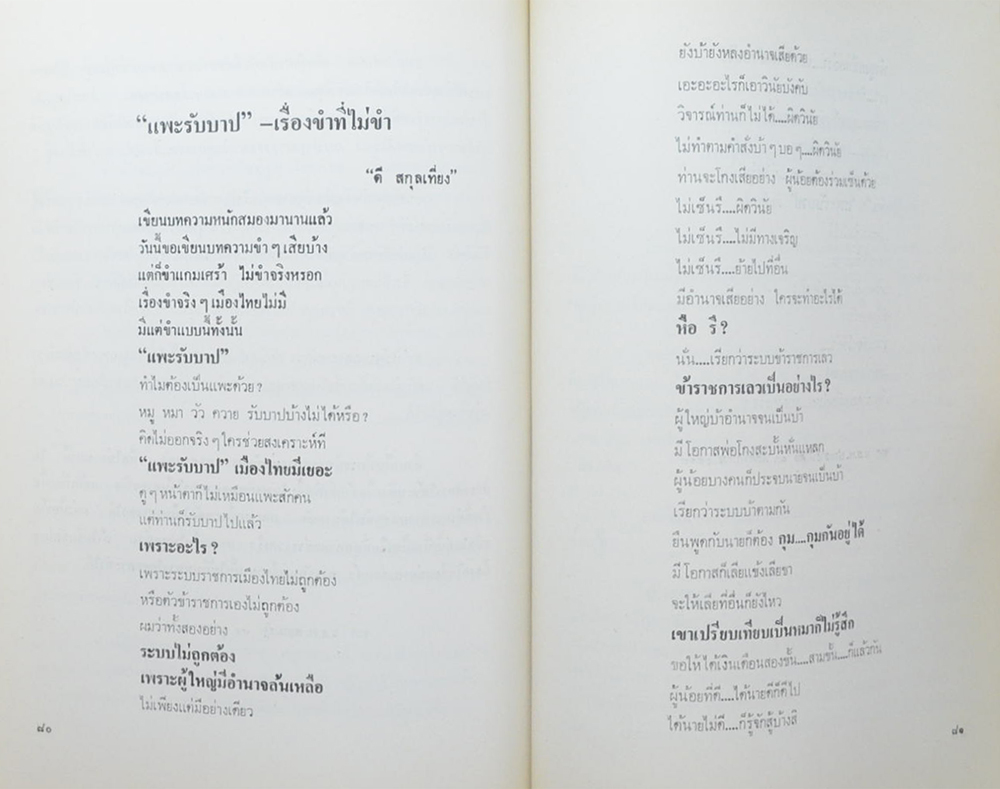 “แพะรับบาป” –เรื่องขำที่ไม่ขำ
“ดี สกุลเที่ยง”
เขียนบทความหนักสมองมานานแล้ว
วันนี้ขอเขียนบทความขำ ๆ เสียบ้าง
แต่ก็ขำแกมเศร้า ไม่ขำจริงหรอก
เรื่องขำจริง ๆ เมืองไทยไม่มี
มีแต่ขำแบบนี้ทั้งนั้น
“แพะรับบาป”
ทำไมต้องเป็นแพะด้วย ?
หมู หมา วัว ควาย รับบาปบ้างไม่ได้หรือ ?
คิดไม่ออกจริง ๆ ใครช่วยสงเคราะห์ที
“แพะรับบาป” เมืองไทยมีเยอะ
ดู ๆ หน้าตาก็ไม่เหมือนแพะสักคน
แต่ท่านก็รับบาปไปแล้ว
เพราะอะไร ?
เพราะระบบราชการเมืองไทยไม่ถูกต้อง
หรือตัวข้าราชการเองไม่ถูกต้อง
ผมว่าทั้งสองอย่าง
ระบบไม่ถูกต้อง
เพราะผู้ใหญ่มีอำนาจล้นเหลือ
ไม่เพียงแต่มีอย่างเดียว
๘๐
ยังบ้ายังหลงอำนาจเสียด้วย
เอะอะอะไรก็เอาวินัยบังคับ
วิจารณ์ท่านก็ไม่ได้....ผิดวินัย
ไม่ทำตามคำสั่งบ้า ๆ บอ ๆ....ผิดวินัย
ท่านจะโกงเสียอย่าง ผู้น้อยต้องร่วมเซ็นด้วย
ไม่เซ็นรึ....ผิดวินัย
ไม่เซ็นรึ....ไม่มีทางเจริญ
ไม่เซ็นรึ....ย้ายไปที่อื่น
มีอำนาจเสียอย่าง ใครจะทำอะไรได้
หือ รึ ?
นั่น....เรียกว่าระบบข้าราชการเลว
ข้าราชการเลวเป็นอย่างไร ?
ผู้ใหญ่บ้าอำนาจจนเป็นบ้า
มีโอกาสพ่อโกงสะบั้นหั่นแหลก
ผู้น้อยบางคนก็ประจบนายจนเป็นบ้า
เรียกว่าระบบบ้าตามกัน
ยืนพูดกับนายก็ต้อง กุม....กุมกันอยู่ได้
มีโอกาสก็เลียแข้งเลียขา
จะให้เลียที่อื่นก็ยังไหว
เขาเปรียบเทียบเป็นหมาก็ไม่รู้สึก
ขอให้ได้เงินเดือนสองขั้น....สามขั้น....ก็แล้วกัน
ผู้น้อยที่ดี....ได้นายดีก็ดีไป
ได้นายไม่ดี....ก็รู้จักสู้บ้างสิ
๘๑